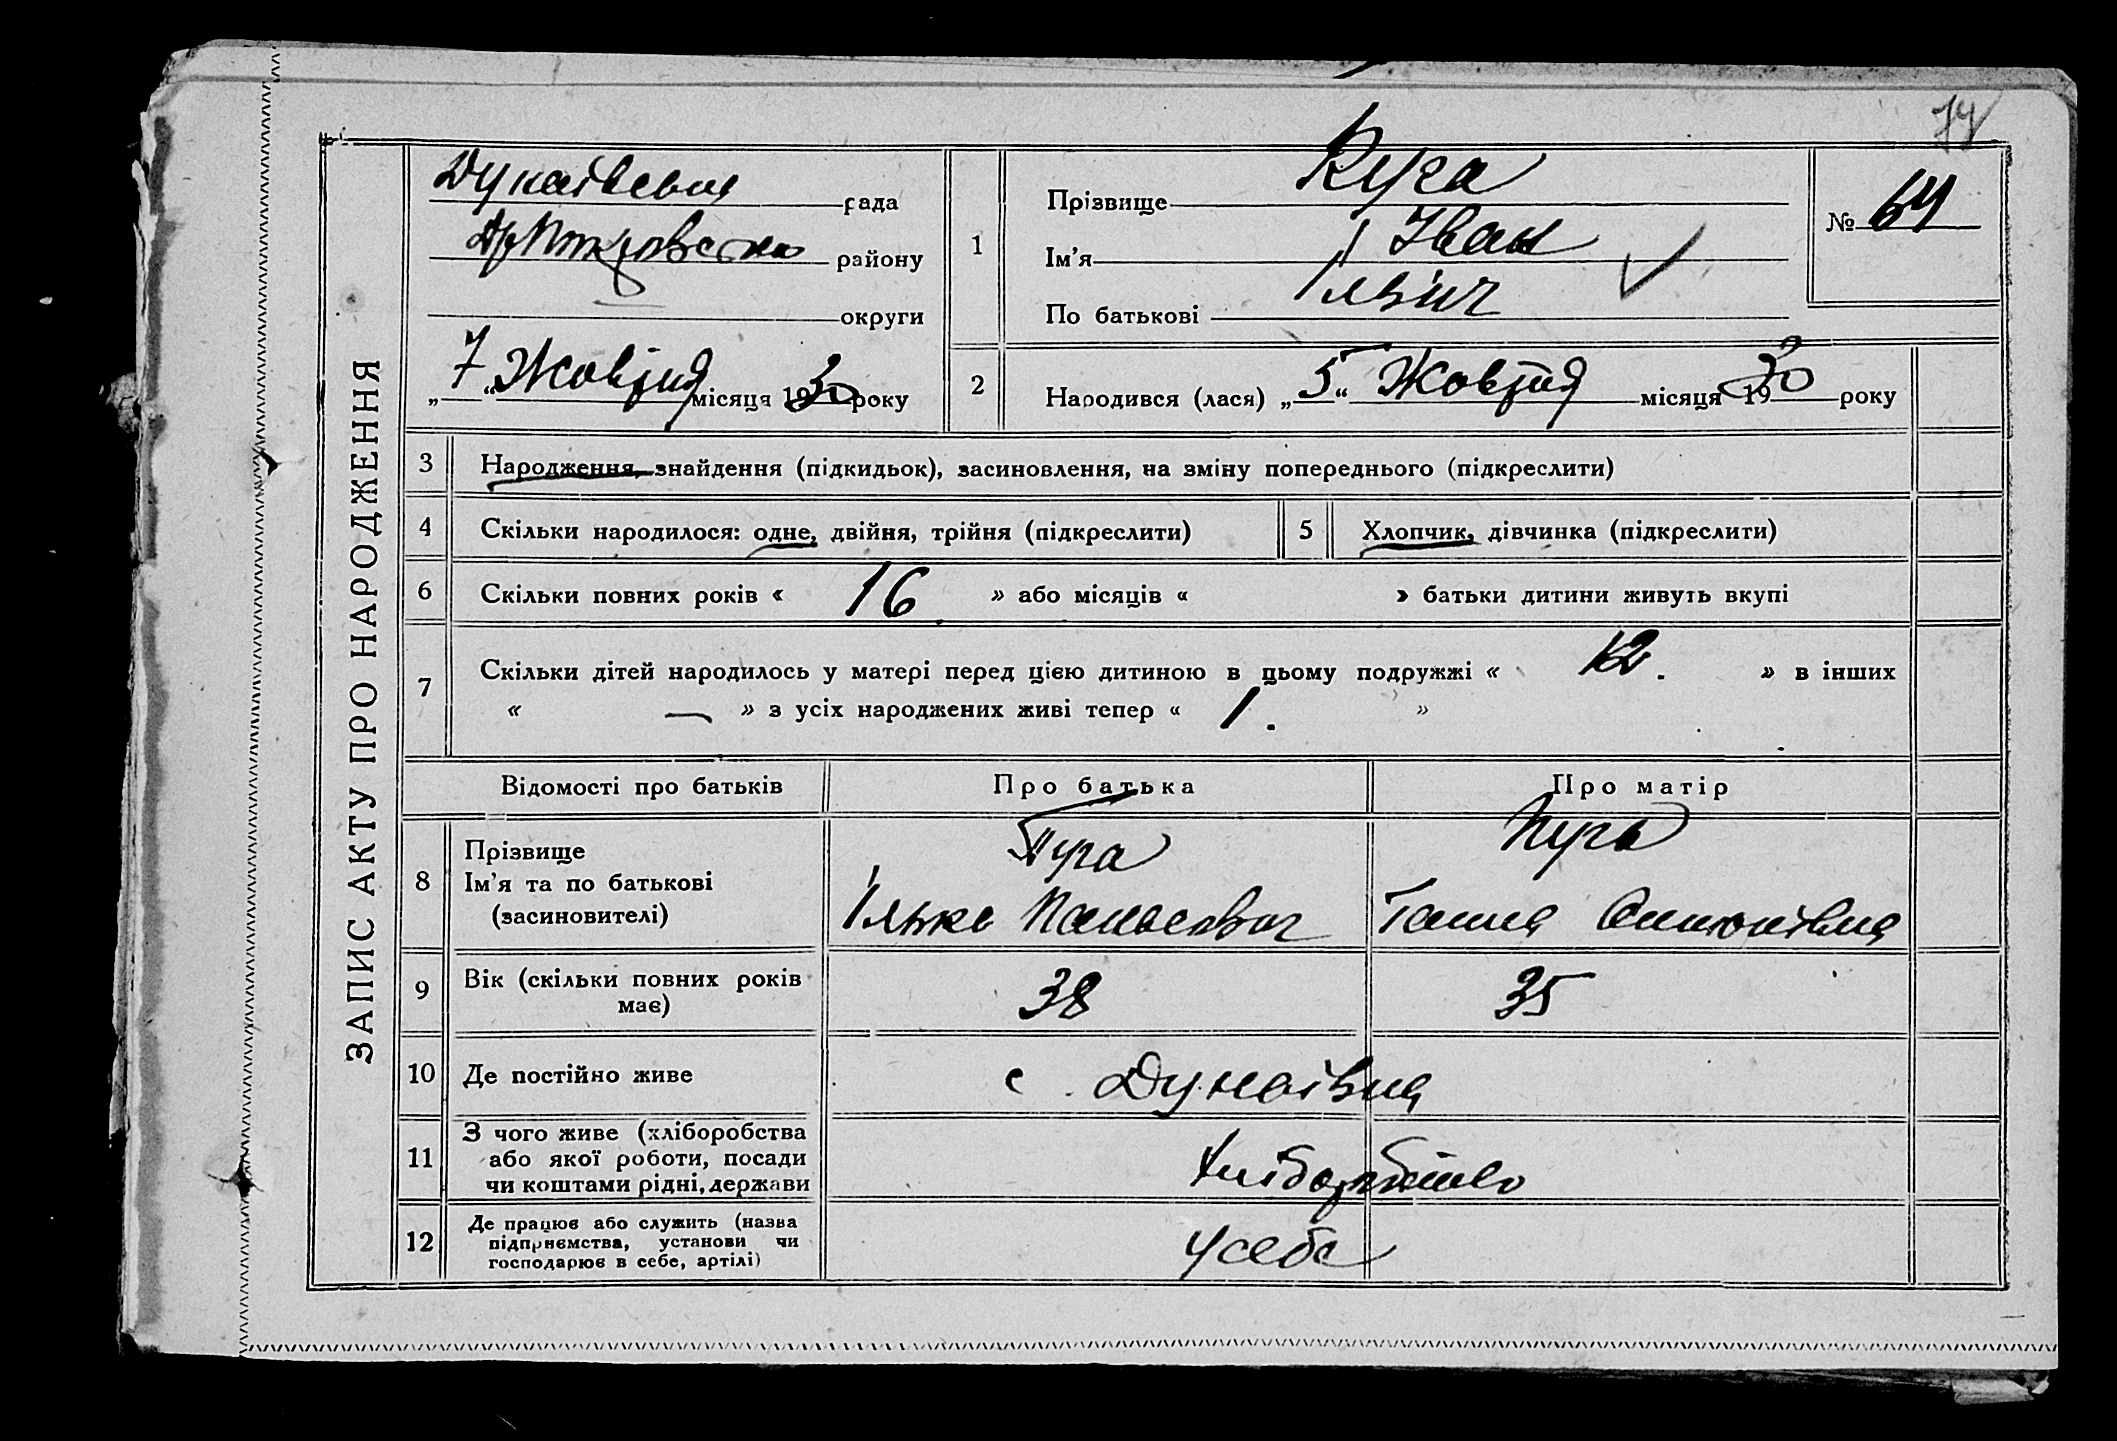 74
ЗАПИС АКТУ ПРО НАРОДЖЕННЯ
Дунаївська рада
району
округи
7 „ “ Жовтня місяця 1930 року
1
Прізвище Пуга
Ім'я Іван
По батькові Ілліч
№ 64
2 Народився (лася) „ 5 “ Жовтня місяця 1930 року
3 Народження, знайдення (підкидьок), засиновлення, на зміну попереднього (підкреслити)
4 Скільки народилося: одне, двійня, трійня (підкреслити) 5 Хлопчик, дівчинка (підкреслити)
6 Скільки повних років « 16 » або місяців « » батьки дитини живуть вкупі
7 Скільки дітей народилось у матері перед цією дитиною в цьому подружжі « 12. » в інших
« — » з усіх народжених живі тепер « 1. »
Відомості про батьків Про батька Про матір
8 Прізвище Пуга Пуга
Ім'я та по батькові Ілько Панасович Ганна Антонівна
(засиновителі)
9 Вік (скільки повних років 38 35
має)
10 Де постійно живе с. Дунаївка
11 З чого живе (хліборобства
або якої роботи, посади Хліборобство
чи коштами рідні, держави
12 Де працює або служить (назва
підприємства, установи чи У себе
господарює в себе, артілі)